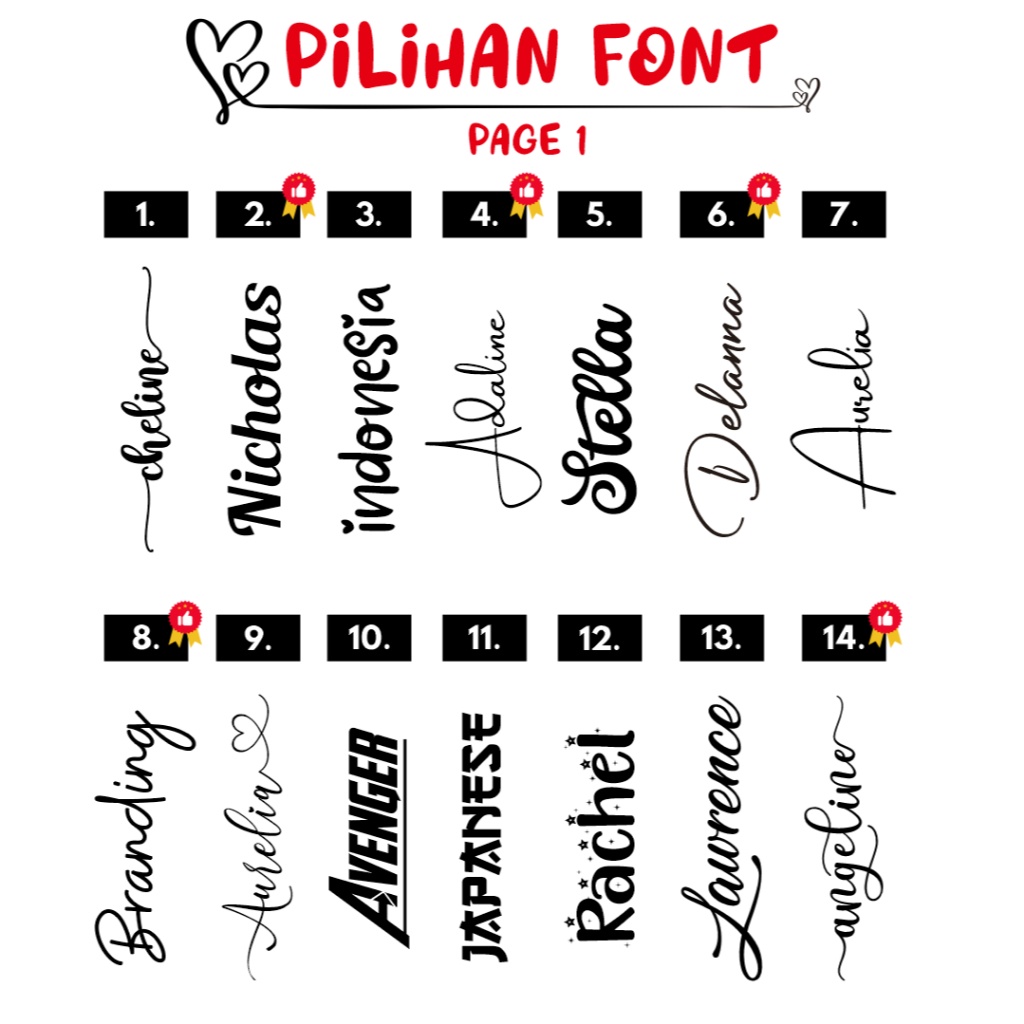 PiLiHAN FONT
PAGE 1
1. 2. 3. 4. 5. 6. 7.
cheline
Nicholas
indonesia
Adaline
Stella
Delanna
Aurelia
8. 9. 10. 11. 12. 13. 14.
Branding
Aurelia
AVENGER
JAPANESE
Rachel
Lawrence
angeline